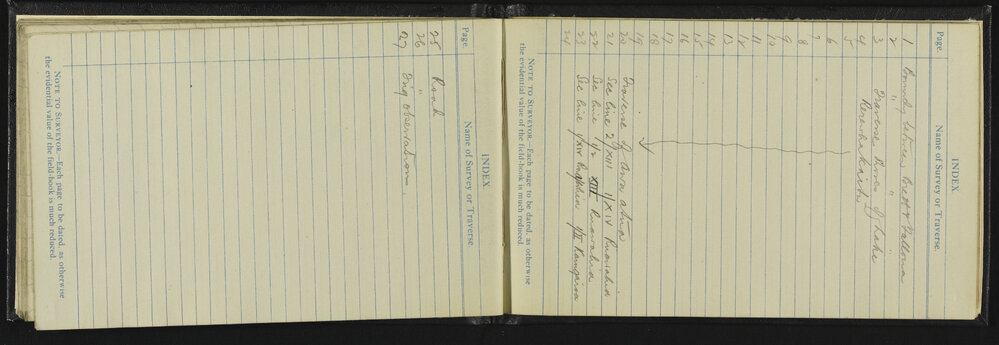 INDEX.
Page. Name of Survey or Traverse.
1 Boundy between Bred &
2 " " "
3 Traverse Shores of Lake
4 Rerewhakaitu
5
6
7
8
9
10
11
12
13
14
15
16
17
18
19
20 Traverse of Awa atua
21 See line 2/XIII 1/XIV Ruawahia
22 See line 1/2 XIII Ruawahia
23 See line 1/XIV 1/II Rangaroa
24
NOTE TO SURVEYOR.—Each page to be dated, as otherwise
the evidential value of the field-book is much reduced.
INDEX.
Page. Name of Survey or Traverse.
25 Road
26 "
27 Orig observation.
NOTE TO SURVEYOR.—Each page to be dated, as otherwise
the evidential value of the field-book is much reduced.